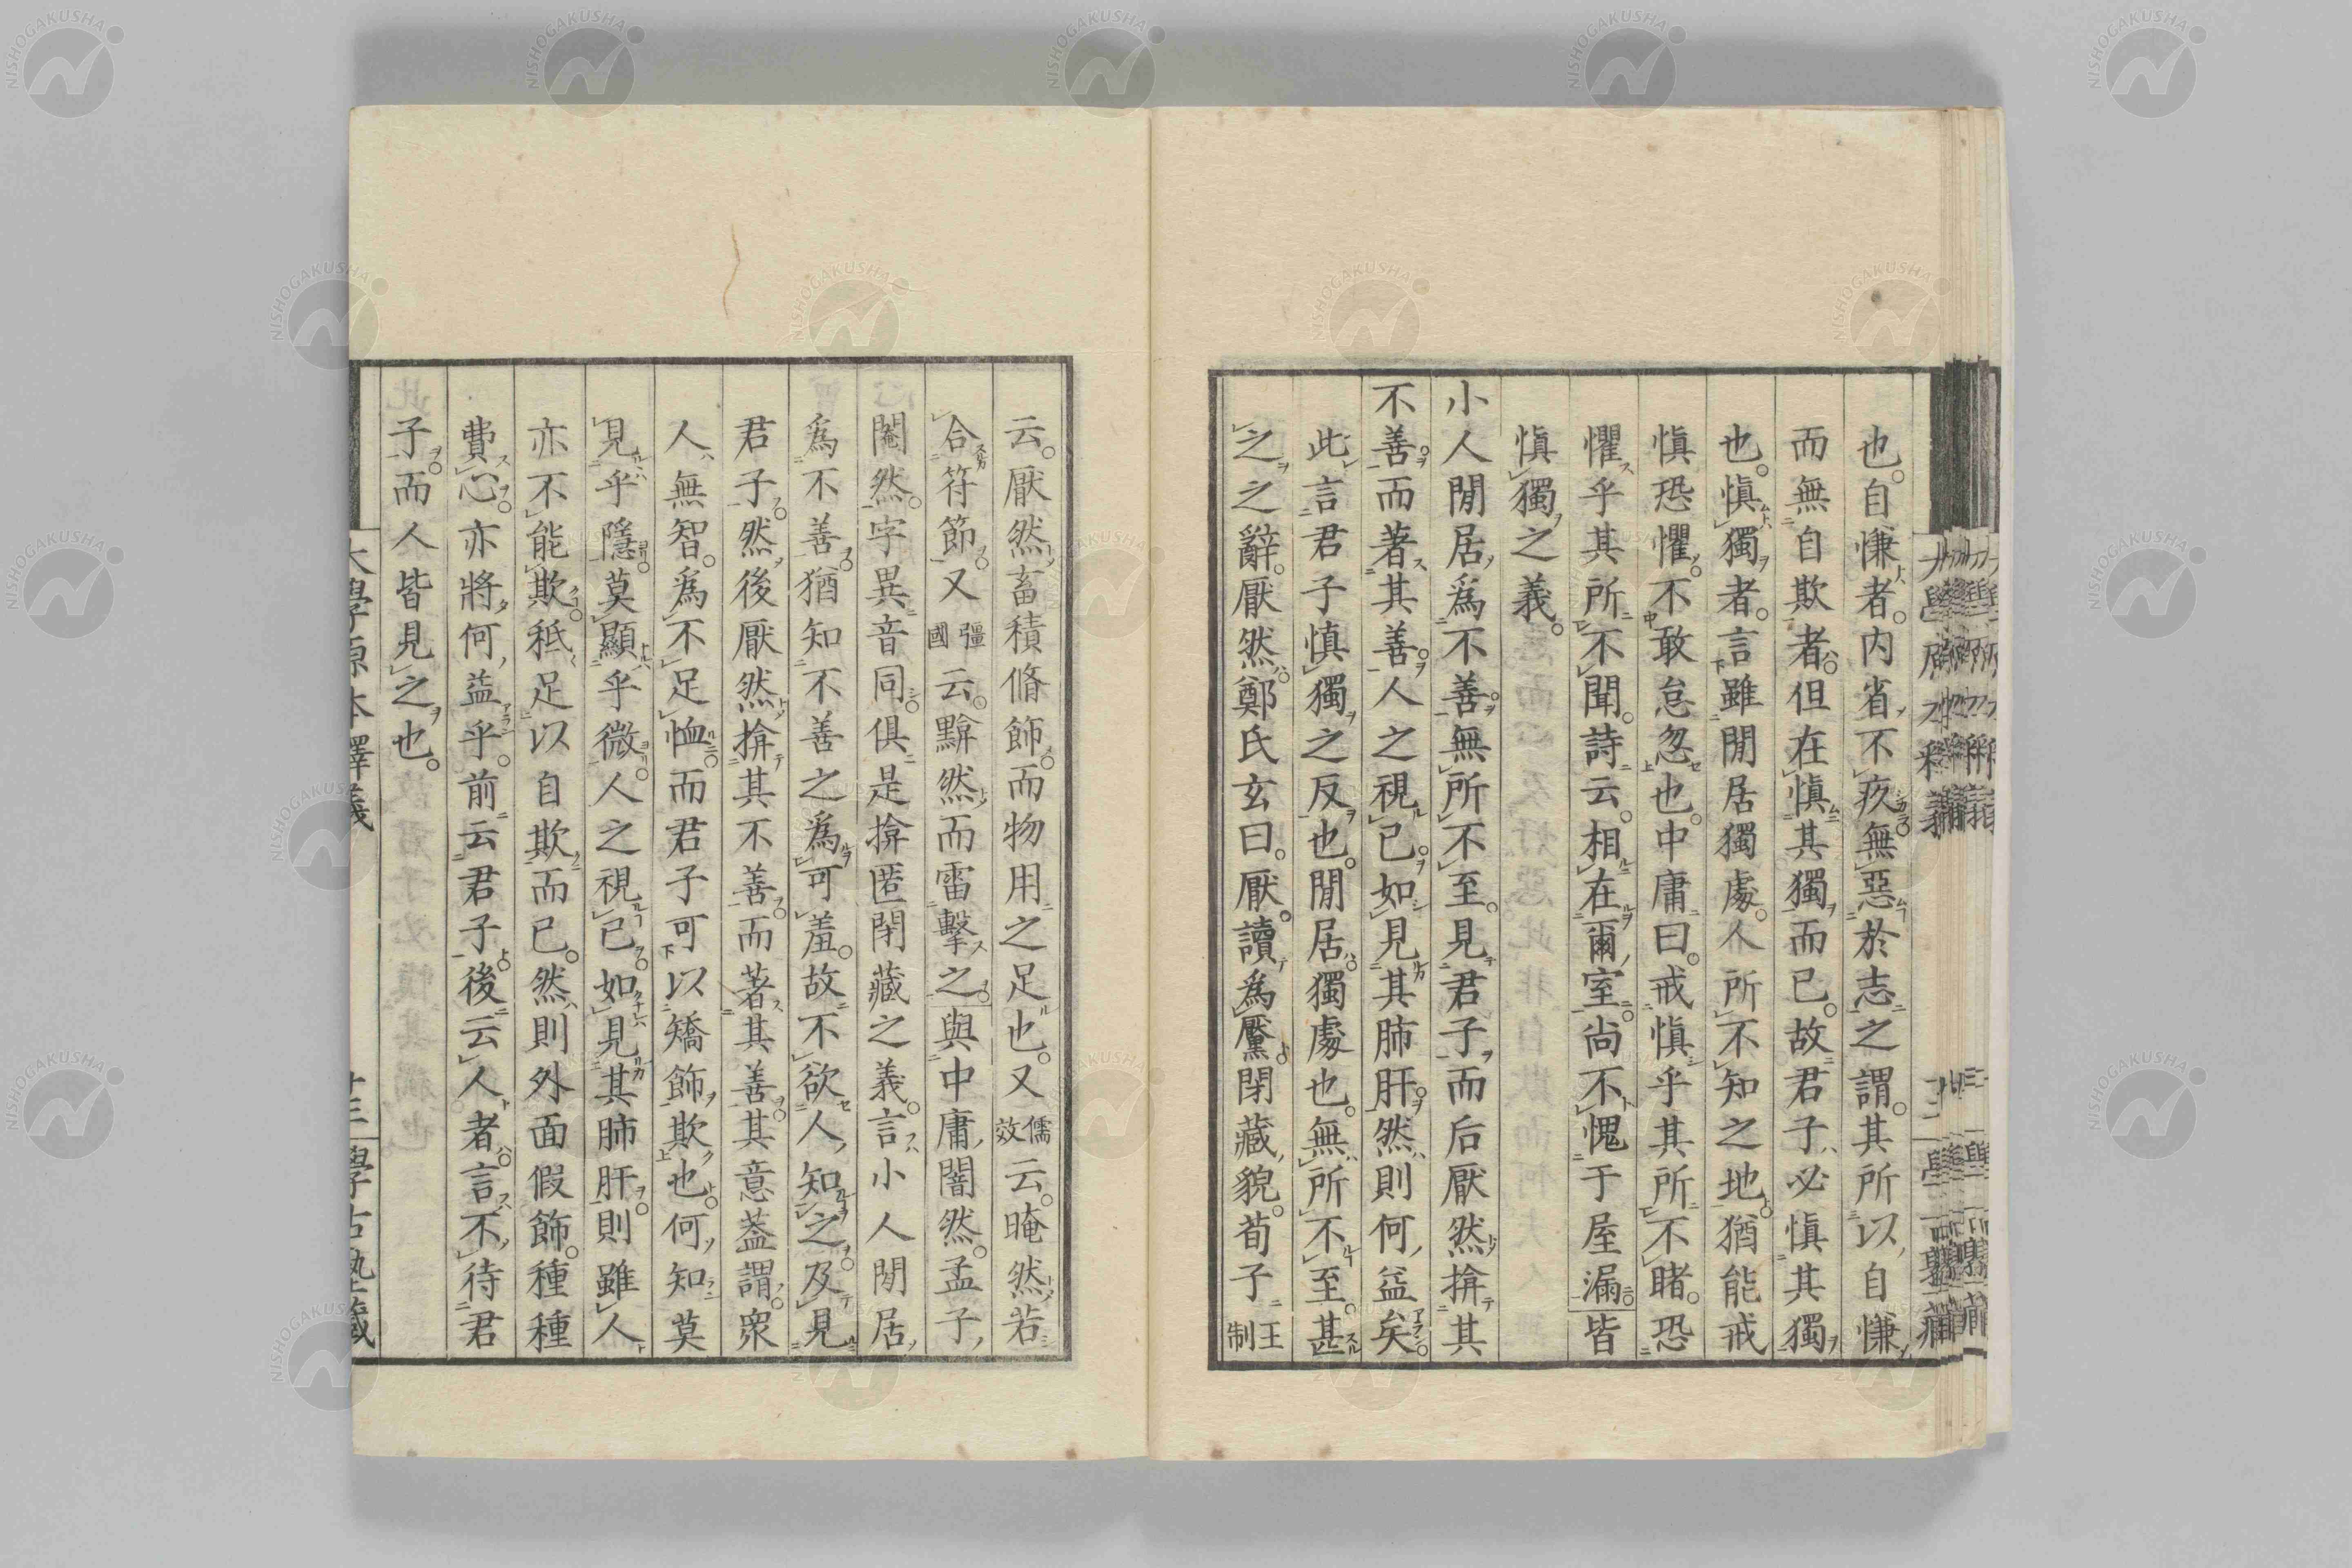 也。自慊者。内省不疚無惡於志之謂。其所以自慊
而無自欺者。但在慎其獨而已。故君子必慎其獨
也。慎獨者。言雖閒居獨處。人所不知之地。猶能戒
慎恐懼。不敢怠忽也。中庸曰。戒慎乎其所不睹。恐
懼乎其所不聞。詩云。相在爾室。尚不愧于屋漏。皆
慎獨之義。
小人閒居爲不善。無所不至。見君子而后厭然揜其
不善。而著其善。人之視己。如見其肺肝。然則何益矣。
此言君子慎獨之反也。閒居。獨處也。無所不至。甚
之之辭。厭然。鄭氏玄曰。厭。讀爲黶。閉藏貌。荀子王制
云。厭然畜積脩飾。而物用之足也。又儒效云。晻然若
合符節。又彊國云。黭然而雷擊之。與中庸闇然。孟子
閹然。字異音同。俱是揜匿閉藏之義。言小人閒居
爲不善。猶知不善之爲可羞。故不欲人知之。及見
君子。然後厭然揜其不善。而著其善。其意蓋謂。衆
人無智。爲不足恤。而君子可以矯飾欺也。何知莫
見乎隱。莫顯乎微。人之視己。如見其肺肝。則雖人
亦不能欺。秖足以自欺而已。然則外面假飾。種種
費心。亦將何益乎。前云君子。後云人者。言不待君
子。而人皆見之也。
大學原本釋義
十三
學古塾藏
NISHOGAKUSHA